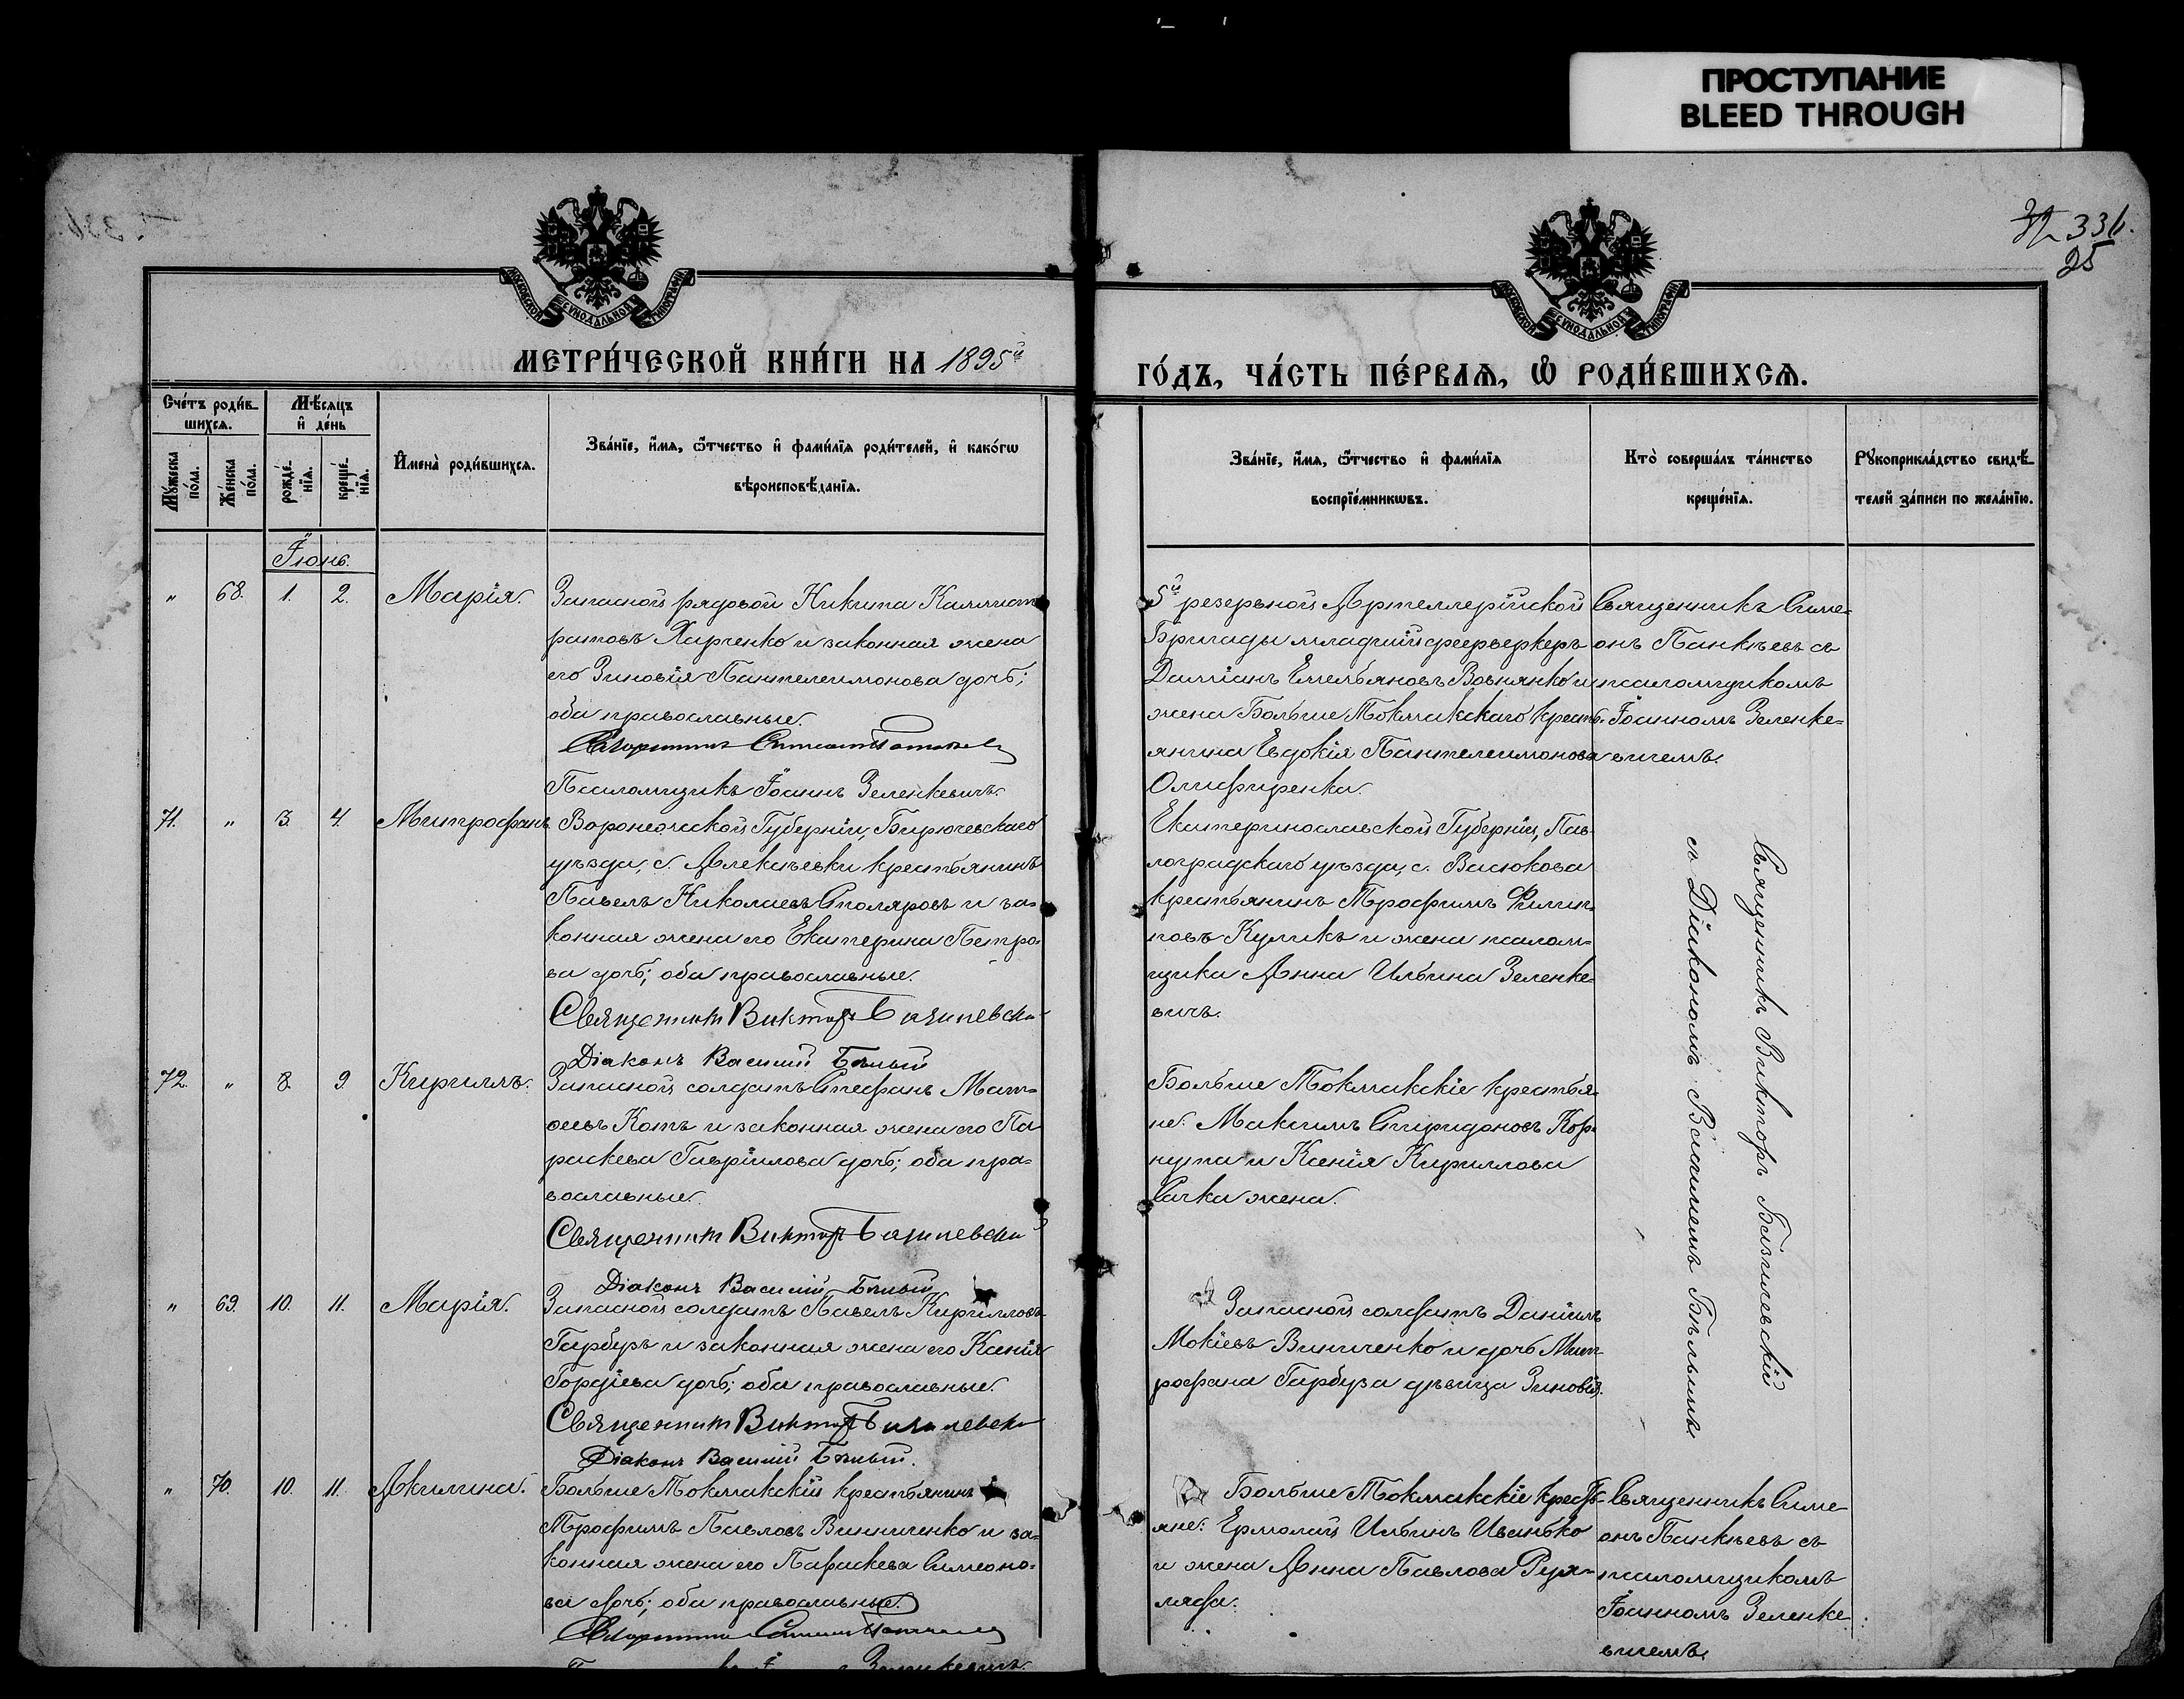 ПРОСТУПАНИЕ
BLEED THROUGH
336.
25
МОСКОВСКОЙ СѴНОДАЛЬНОЙ ТИПОГРАФІИ
МОСКОВСКОЙ СѴНОДАЛЬНОЙ ТИПОГРАФІИ
МЕТРИ́ЧЕСКОЙ КНИ́ГИ НА 1895й
ГО́ДЪ, ЧА́СТЬ ПЕ́РВАѦ, Ѡ҆ РОДИ́ВШИХСѦ.
Сче́тъ роди́в-
шихсѧ.
Мѣ́сѧцъ
и҆ де́нь
Мꙋ́жеска
по́ла.
Же́нска
по́ла.
рожде́-
нїѧ.
креще́-
нїѧ.
И҆мена̀ роди́вшихсѧ.
Зва́нїе, и҆́мѧ, ѻ҆́тчество и҆ фами́лїѧ роди́телей, и҆ како́гѡ
вѣроисповѣ́данїѧ.
Зва́нїе, и҆́мѧ, ѻ҆́тчество и҆ фами́лїѧ
воспрїе́мникѡвъ.
Кто̀ соверша́лъ та́инство
креще́нїѧ.
Рꙋкоприкла́дство свидѣ́-
телей за́писи по жела́нїю.
Іюнь.
" 68. 1. 2. Марія.
Запасной рядовой Никита Каллист
ратовъ Харченко и законная жена
его Зиновія Пантелеимонова дочь;
оба православные.
Псаломщикъ Іоаннъ Зеленкевичъ.
5й резервной Артеллерійской
Бригады младшій феерверкеръ
Даміанъ Емельяновъ Вовнянко и
жена Больше Токмакскаго кресть-
янина Евдокія Пантелеимонова
Олифиренка.
Священникъ Симе-
онъ Панкѣевъ съ
псаломщикомъ
Іоанномъ Зеленке-
вичемъ.
71. " 3. 4. Митрофанъ
Воронежской Губерніи, Бирючевскаго
уѣзда, с. Алексѣевки крестьянинъ
Павелъ Николаевъ Столяровъ и за-
конная жена его Екатерина Петро-
ва дочь; оба православные.
Священникъ Викторъ Базилевскій
Діаконъ Василій Бѣлый
Екатеринославской Губерніи, Пав-
лоградскаго уѣзда, с. Васюкова
крестьянинъ Трофимъ Филип-
повъ Куликъ и жена псалом-
щика Анна Ильина Зеленке-
вичъ.
Священникъ Викторъ Базилевскій
съ Діакономъ Василіемъ Бѣлымъ
72. " 8. 9. Кириллъ.
Запасной солдатъ Стефанъ Мат-
ѳеевъ Котъ и законная жена его Па
раскева Гавріилова дочь; оба пра-
вославные.
Священникъ Викторъ Базилевскій
Діаконъ Василій Бѣлый
Больше Токмакскіе крестья-
не: Максимъ Спиридоновъ Кор-
нута и Ксенія Кириллова
Сачка жена.
" 69. 10. 11. Марія.
Запасной солдатъ Павелъ Кирилловъ
Гарбузъ и законная жена его Ксенія
Гордіева дочь; оба православные.
Священникъ Викторъ Базилевскій
Діаконъ Василій Бѣлый.
Запасной солдатъ Даніилъ
Мокіевъ Винниченко и дочь Мит-
рофана Гарбуза дѣвица Зиновія.
" 70. 10. 11. Акилина.
Больше Токмакскій крестьянинъ
Трофимъ Павловъ Винниченко и за-
конная жена его Параскева Симеоно-
ва дочь; оба православные.
Больше Токмакскіе кресть-
яне: Ермолай Ильинъ Иванько
и жена Анна Павлова
Священникъ Симе
онъ Панкѣевъ съ
псаломщикомъ
Іоанномъ Зеленке
вичемъ.